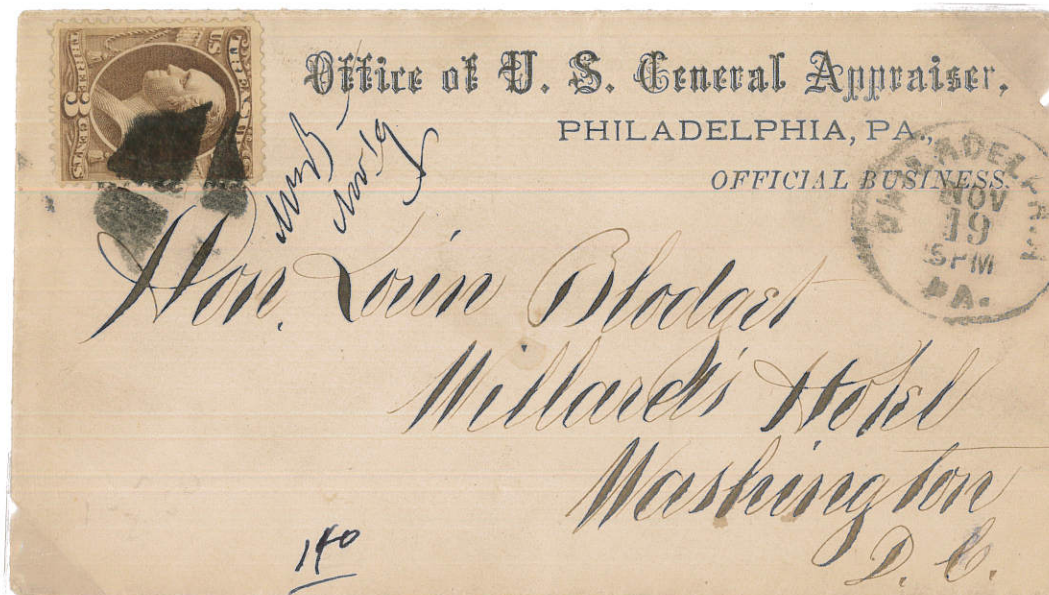 Office of U. S. General Appraiser,
PHILADELPHIA, PA.,
OFFICIAL BUSINESS.
Nov 19
PHILADELPHIA
NOV
19
5 PM
PA.
Hon. Lorin Blodget
Willard's Hotel
Washington
D. C.
140